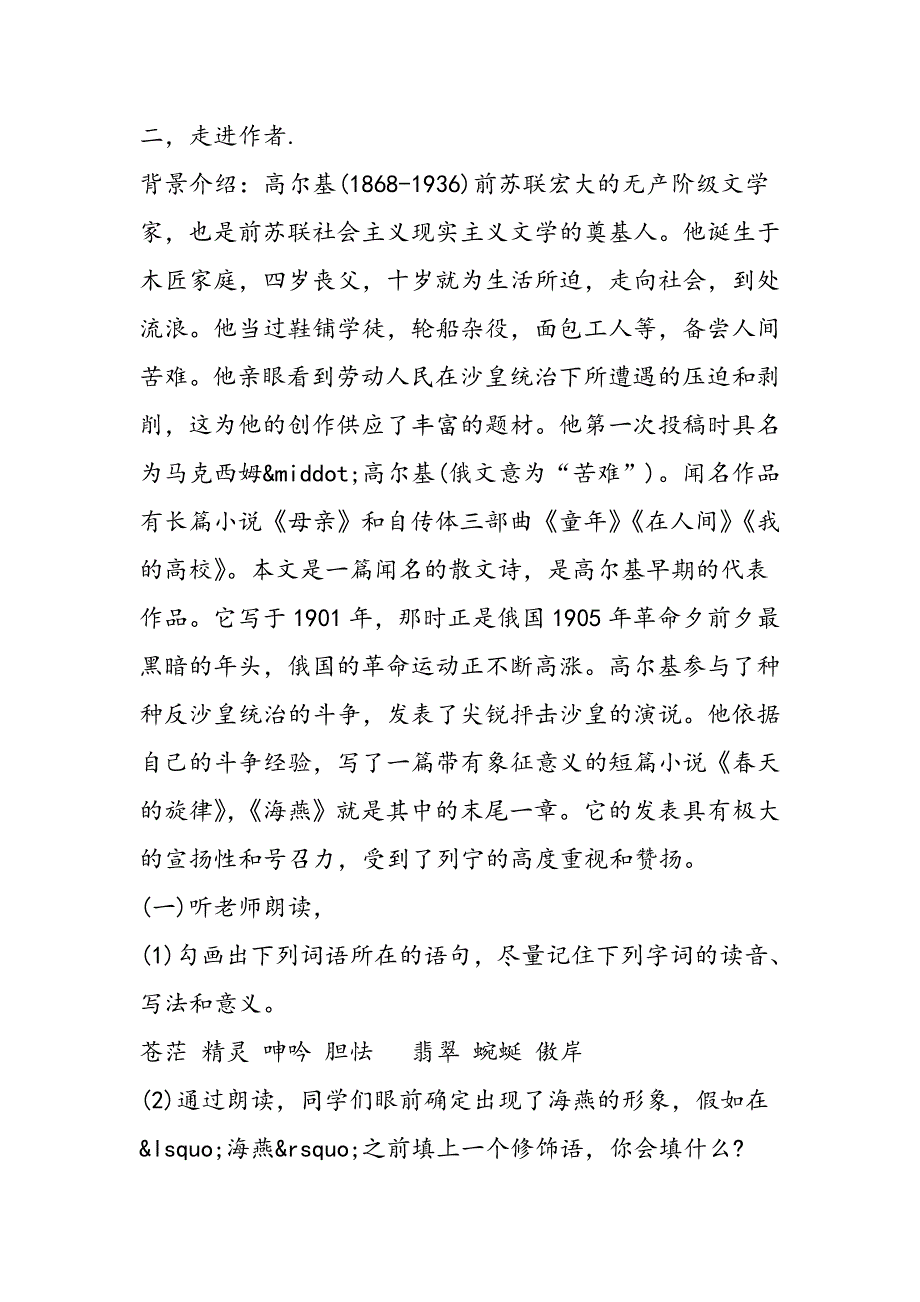 二，走进作者.
背景介绍：高尔基(1868-1936)前苏联宏大的无产阶级文学
家，也是前苏联社会主义现实主义文学的奠基人。他诞生于
木匠家庭，四岁丧父，十岁就为生活所迫，走向社会，到处
流浪。他当过鞋铺学徒，轮船杂役，面包工人等，备尝人间
苦难。他亲眼看到劳动人民在沙皇统治下所遭遇的压迫和剥
削，这为他的创作供应了丰富的题材。他第一次投稿时具名
为马克西姆&middot;高尔基(俄文意为“苦难”)。闻名作品
有长篇小说《母亲》和自传体三部曲《童年》《在人间》《我
的高校》。本文是一篇闻名的散文诗，是高尔基早期的代表
作品。它写于1901年，那时正是俄国1905年革命夕前夕最
黑暗的年头，俄国的革命运动正不断高涨。高尔基参与了种
种反沙皇统治的斗争，发表了尖锐抨击沙皇的演说。他依据
自己的斗争经验，写了一篇带有象征意义的短篇小说《春天
的旋律》，《海燕》就是其中的末尾一章。它的发表具有极大
的宣扬性和号召力，受到了列宁的高度重视和赞扬。
(一)听老师朗读，
(1)勾画出下列词语所在的语句，尽量记住下列字词的读音、
写法和意义。
苍茫 精灵 呻吟 胆怯 翡翠 蜿蜒 傲岸
(2)通过朗读，同学们眼前确定出现了海燕的形象，假如在
&lsquo;海燕&rsquo;之前填上一个修饰语，你会填什么?